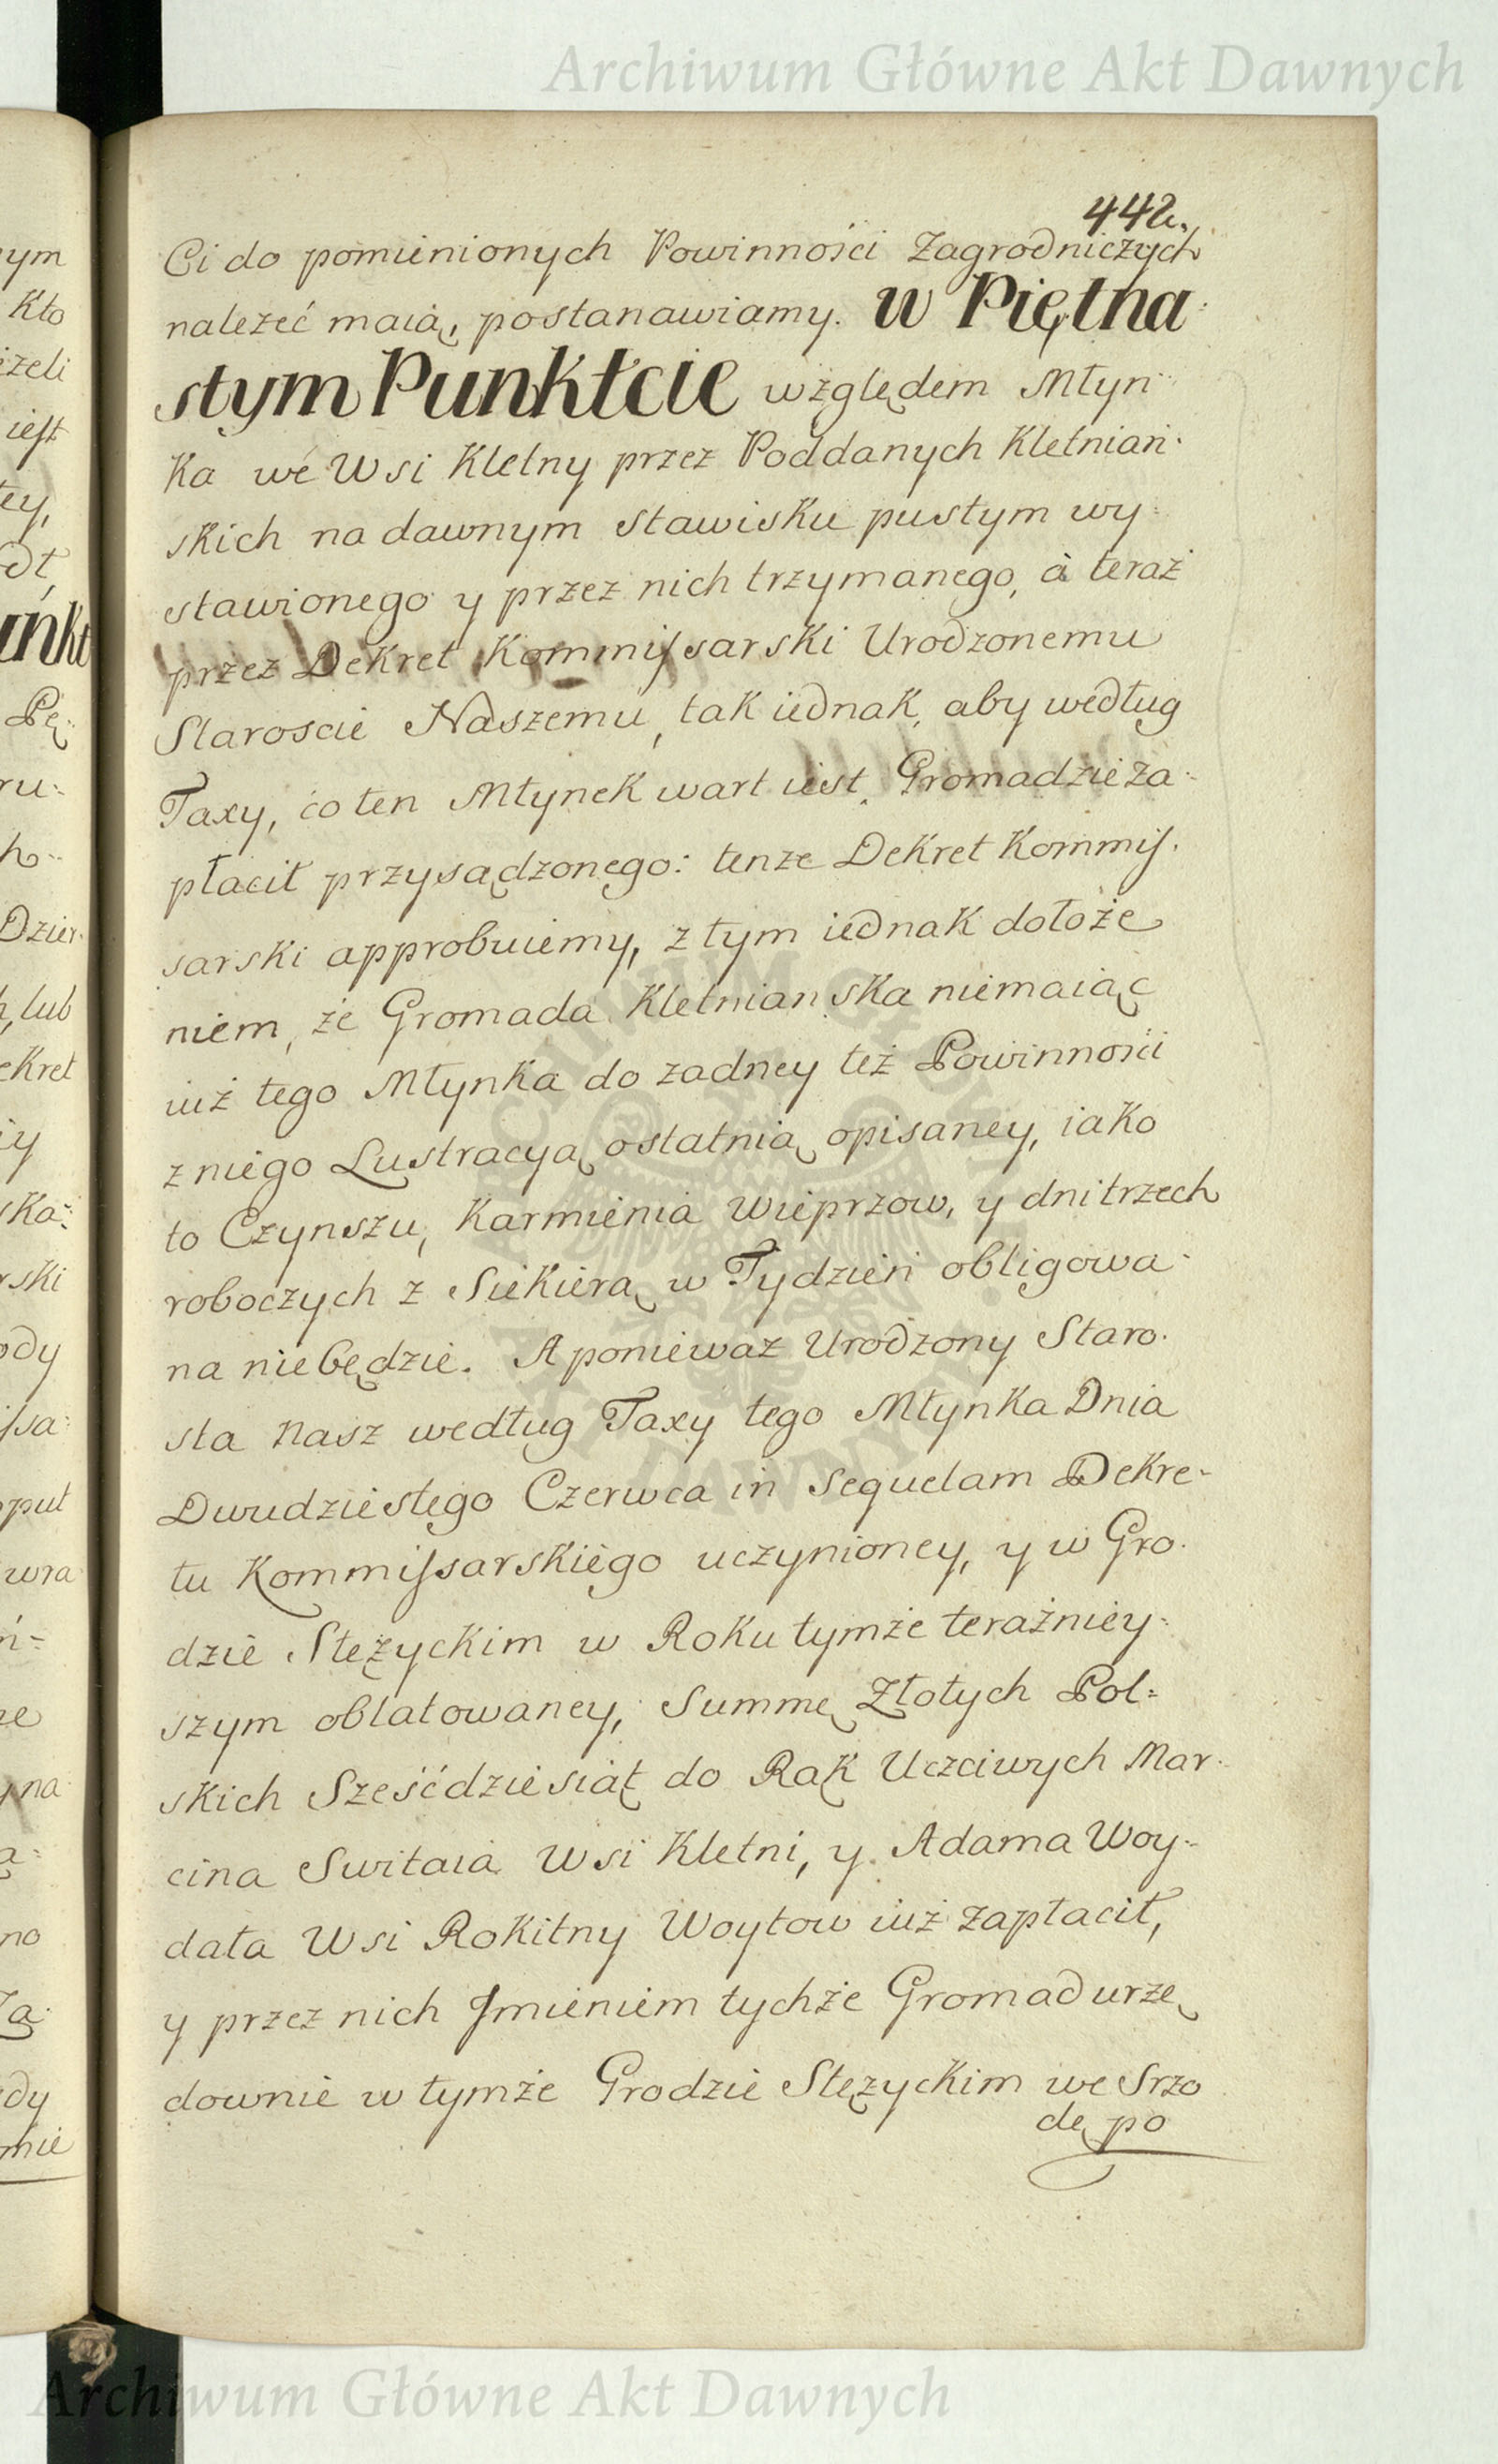 Archiwum Główne Akt Dawnych
442.
Ci do pomienionych Powinności Zagrodniczych
należeć maią, postanawiamy. w Piętna
stym Punktcie względem Młyn
ka we Wsi Kletny przez Poddanych Kletniań
skich na dawnym stawisku pustym wy
stawionego y przez nich trzymanego, à teraz
przez Dekret Kommissarski Urodzonemu
Staroscie Naszemu, tak iednak, aby według
Taxy, co ten Młynek wart iest, Gromadzie za
płacił przysądzonego: tenze Dekret Kommis.
sarski approbuiemy, z tym iednak dołoże
niem, że Gromada Kletnianska niemaiąc
iuż tego Młynka do zadney też Powinności
z niego Lustracyą ostatnią opisaney, iako
to Czynszu, Karmienia Wieprzow, y dni trzech
roboczych z Siekierą w Tydzień obligowa
na niebędzie. A poniewaz Urodzony Staro.
sta Nasz według Taxy tego Młynka Dnia
Dwudziestego Czerwca in Sequelam Dekre-
tu Kommissarskiego uczynioney, y w Gro.
dzie Stezyckim w Roku tymże teraźniey:
szym oblatowaney, Summę Złotych Pol=
skich Sześćdziesiąt do Rąk Uczciwych Mar
cina Switaia Wsi Kletni, y Adama Woy-
data Wsi Rokitny Woytow iuż zapłacił,
y przez nich Jmieniem tychże Gromad urzę
downie w tymże Grodzie Stezyckim we Srzo
dę po
ym
Kto
ieżeli
iest
unkt
ru:
Dzier
lub
ekret
iy
ski
ody
ssa:
wra
no
mie
ARCHIWUM GŁÓWNE AKT DAWNYCH
Archiwum Główne Akt Dawnych